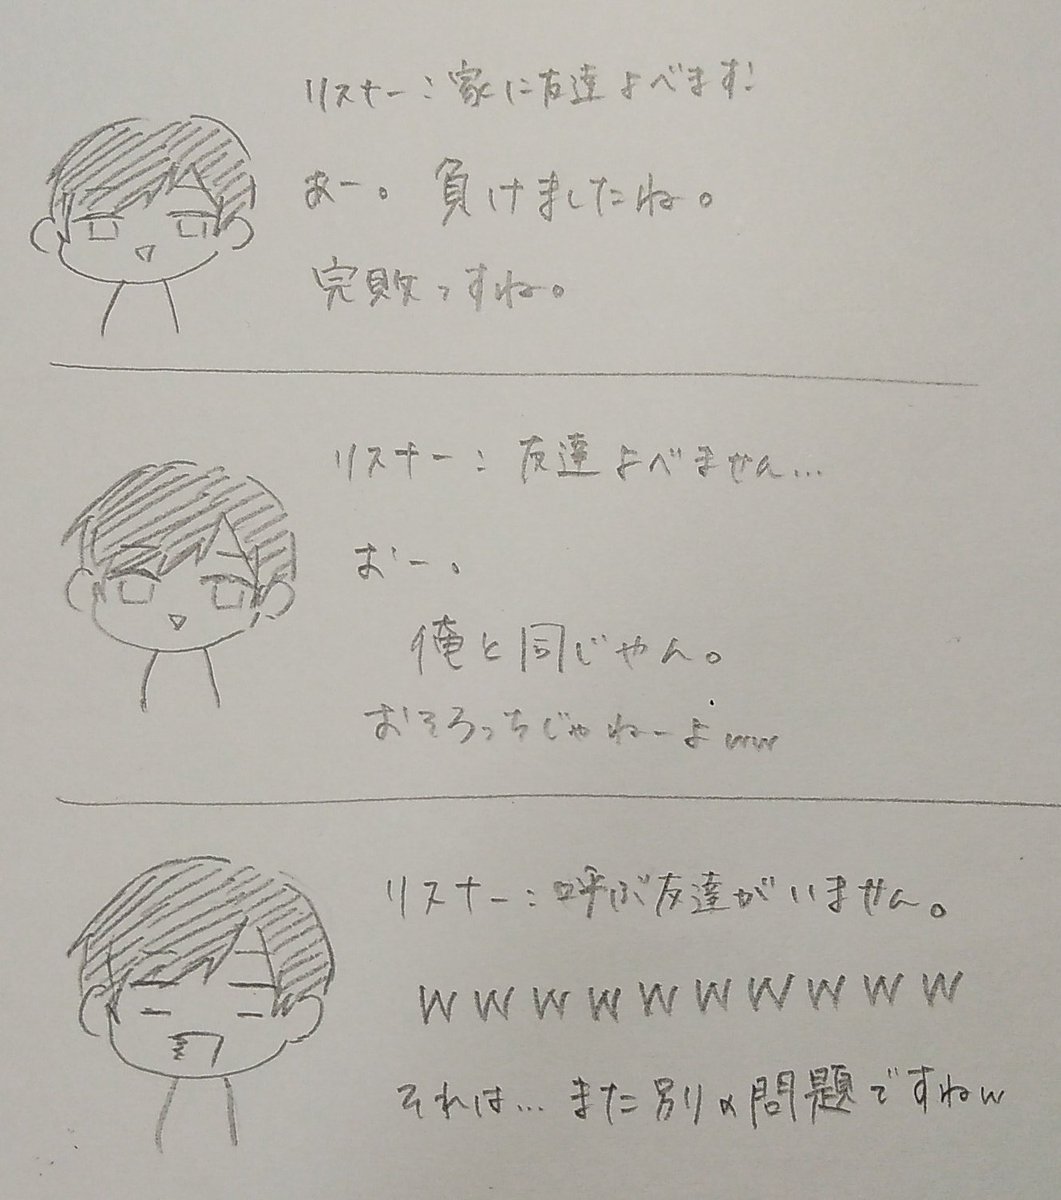 リスナー：家に友達よべます！
あー。負けましたね。
完敗っすね。
リスナー：友達よべません…
おー。
俺と同じゃん。
おそろっちじゃねーよww
リスナー：呼ぶ友達がいません。
wwwwwwwwww
それは…また別の問題ですねw